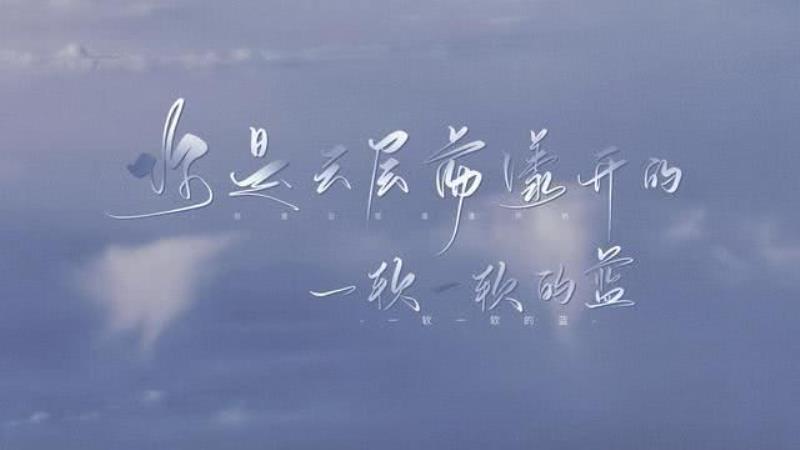 你是云层荡漾开的
你是云层荡漾开的
一软一软的蓝
- 一软一软的蓝 -